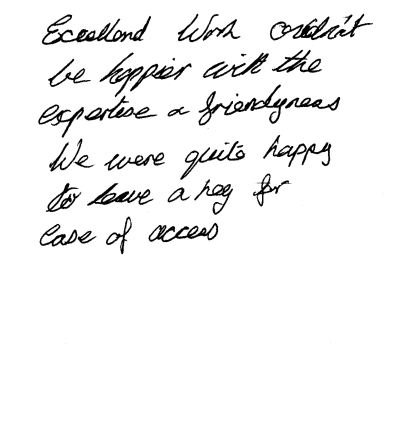 Excellend Work couldn't
be happier with the
expertise & friendyness
We were quite happy
to leave a key for
ease of access